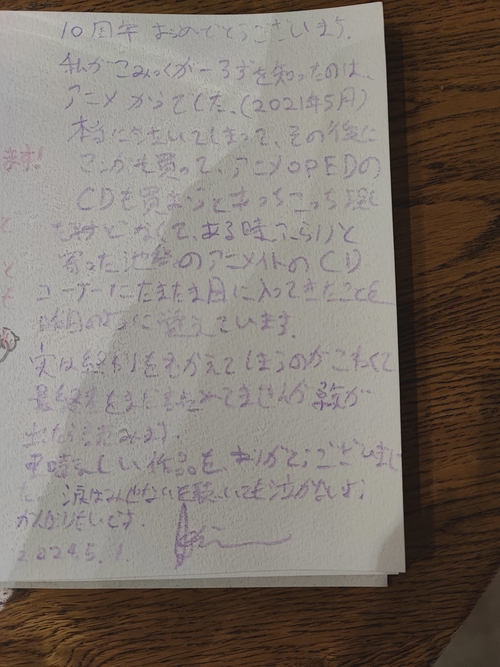 10周年 おめでとうございます。
私がこみっくがーるずを知ったのは、
アニメからでした。(2021年5月)
本当に てしまって、その後に
も買って、アニメOPEDの
CDを買おうとあっちこっち探し
なくて、ある時ふらりと
寄った池袋のアニメイトのCD
コーナーにたまたま目に入ってきたことを
昨日のように覚えています。
実は終わりをむかえてしまうのがこわくて
最終 をまだ ませんが が
出
しい作品を、ありがとうございまし
た。涙はみせないを聴いても泣かないよ
です。
2024.5.1.
ます!